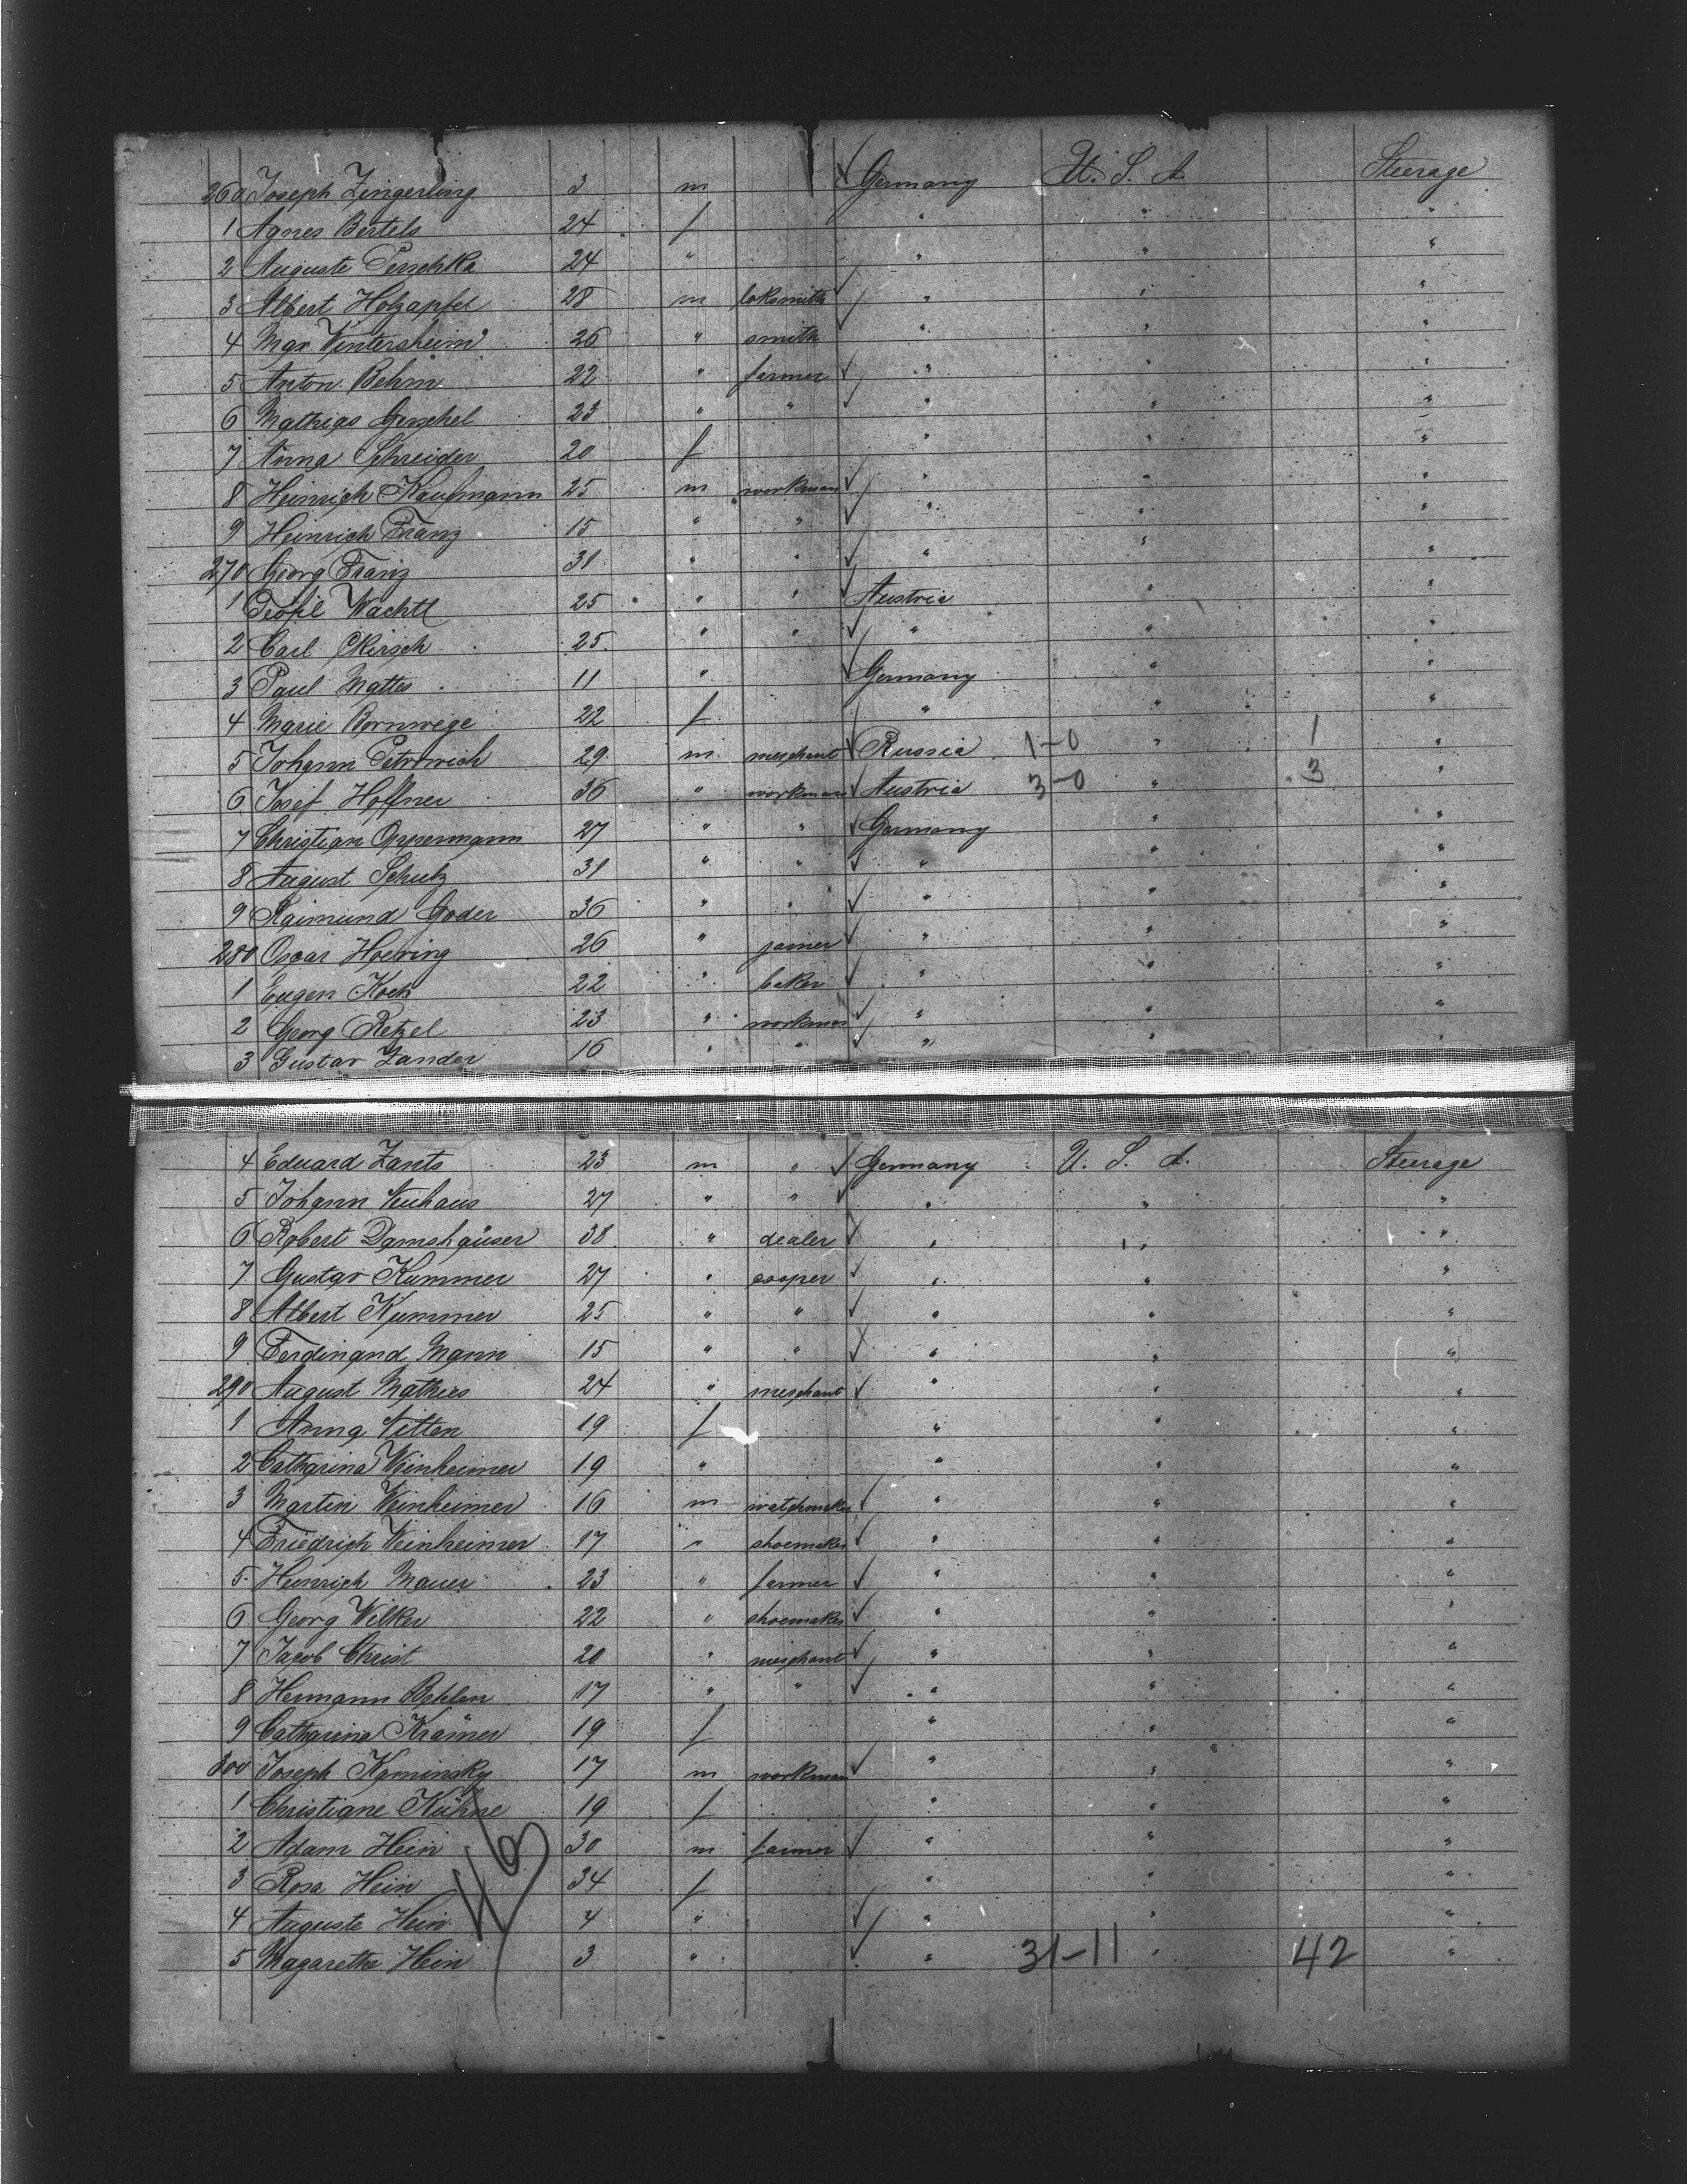 260 Joseph Zingerling 3 m Germany U. S. A. Steerage
1 Agnes Bertels 24 f " " "
2 Auguste Perschka 24 " " " "
3 Albert Holzapfel 28 m loksmith " " "
4 Max Wintersheim 26 " smith " " "
5 Anton Behm 22 " farmer " " "
6 Mathias Gerschel 23 " " " " "
7 Anna Schreider 20 f " " "
8 Heinrich Kaufmann 25 m workman " " "
9 Heinrich Franz 15 " " " " "
270 Georg Franz 31 " " " " "
1 Teofil Wachtl 25 " " Austria " "
2 Carl Kirsch 25 " " " " "
3 Paul Mattes 11 " Germany " "
4 Marie Bornwege 22 f " " "
5 Johann Petrowich 29 m merchant Russia 1-0 " 1 "
6 Josef Hoffner 36 " workman Austria 3-0 " 3 "
7 Christian Oppermann 27 " " Germany " "
8 August Schulz 31 " " " " "
9 Raimund Goder 36 " " " " "
280 Oscar Hoering 26 " joiner " " "
1 Eugen Koch 22 " baker " " "
2 Georg Retzel 23 " workman " " "
3 Gustav Zander 16 " " " " "
4 Eduard Zants 23 m " Germany U. S. A. Steerage
5 Johann Neuhaus 27 " " " " "
6 Robert Damshäuser 38 " dealer " " "
7 Gustav Kummer 27 " cooper " " "
8 Albert Kummer 25 " " " " "
9 Ferdinand Mann 15 " " " " "
290 August Mathies 24 " merchant " " "
1 Anna Vetten 19 f " " "
2 Catharina Weinheimer 19 " " " "
3 Martin Weinheimer 16 m watchmaker " " "
4 Friedrich Weinheimer 17 " shoemaker " " "
5 Heinrich Mauer 23 " farmer " " "
6 Georg Wilker 22 " shoemaker " " "
7 Jacob Christ 20 " merchant " " "
8 Hermann Behlen 17 " " " " "
9 Catharina Krämer 19 f " " "
300 Joseph Kaminsky 17 m workman " " "
1 Christiane Kühne 19 f " " "
2 Adam Hein 30 m farmer " " "
3 Rosa Hein 34 f " " "
4 Auguste Hein 4 " " " "
5 Magarethe Hein 3 " " 31-11 " 42 "
46